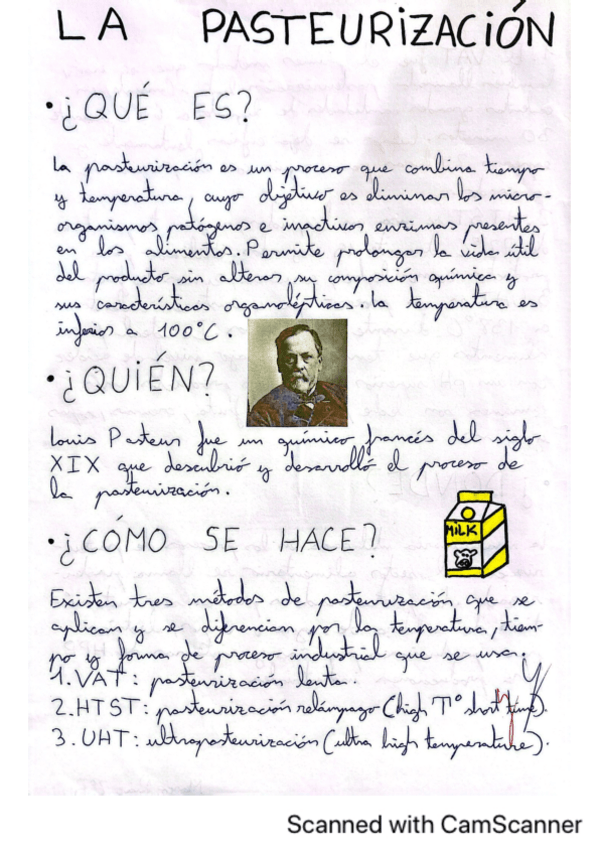 LA PASTEURIZACIÓN
• ¿QUÉ ES?
La pasteurización es un proceso que combina tiempo
y temperatura, cuyo objetivo es eliminar los micro-
organismos patógenos e inactivar enzimas presentes
en los alimentos. Permite prolongar la vida útil
del producto sin alterar su composición química y
sus características organolépticas. La temperatura es
inferior a 100°C.
• ¿QUIÉN?
Louis Pasteur fue un químico francés del siglo
XIX que descubrió y desarrolló el proceso de
la pasteurización.
• ¿CÓMO SE HACE?
MILK
Existen tres métodos de pasteurización que se
aplican y se diferencian por la temperatura, tiem-
po y forma de proceso industrial que se usa:
1. VAT: pasteurización lenta.
2. HTST: pasteurización relámpago (high Tº short time).
3. UHT: ultrapasteurización (ultra high temperature).
Scanned with CamScanner